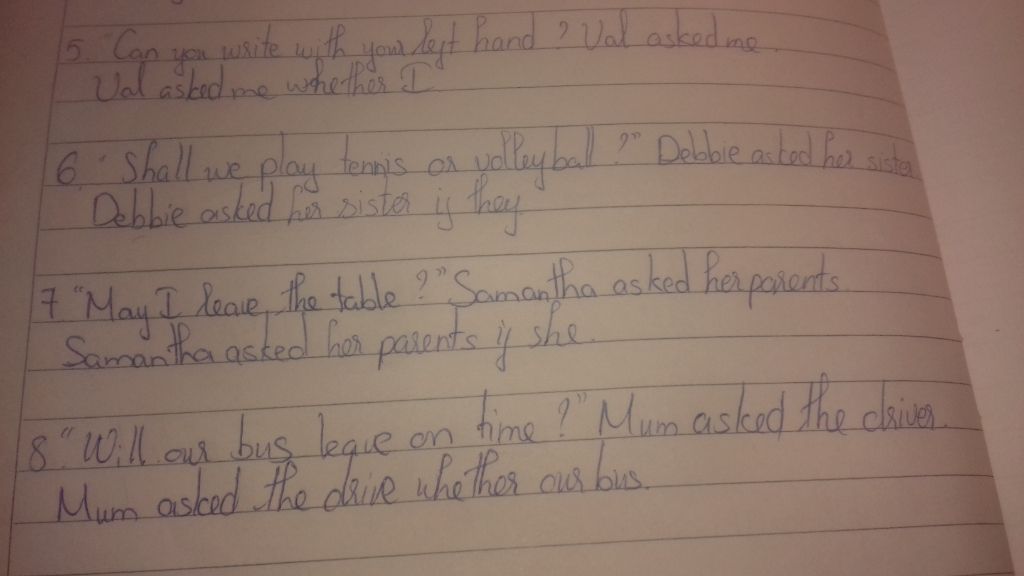 5. "Can you write with your left hand ? Val asked me.
Val asked me whether I
6 "Shall we play tennis or volleyball ?" Debbie asked her sister
Debbie asked her sister if they
7 "May I leave the table ?" Samantha asked her parents.
Samantha asked her parents if she.
8. "Will our bus leave on time ?" Mum asked the driver.
Mum asked the drive whether our bus.